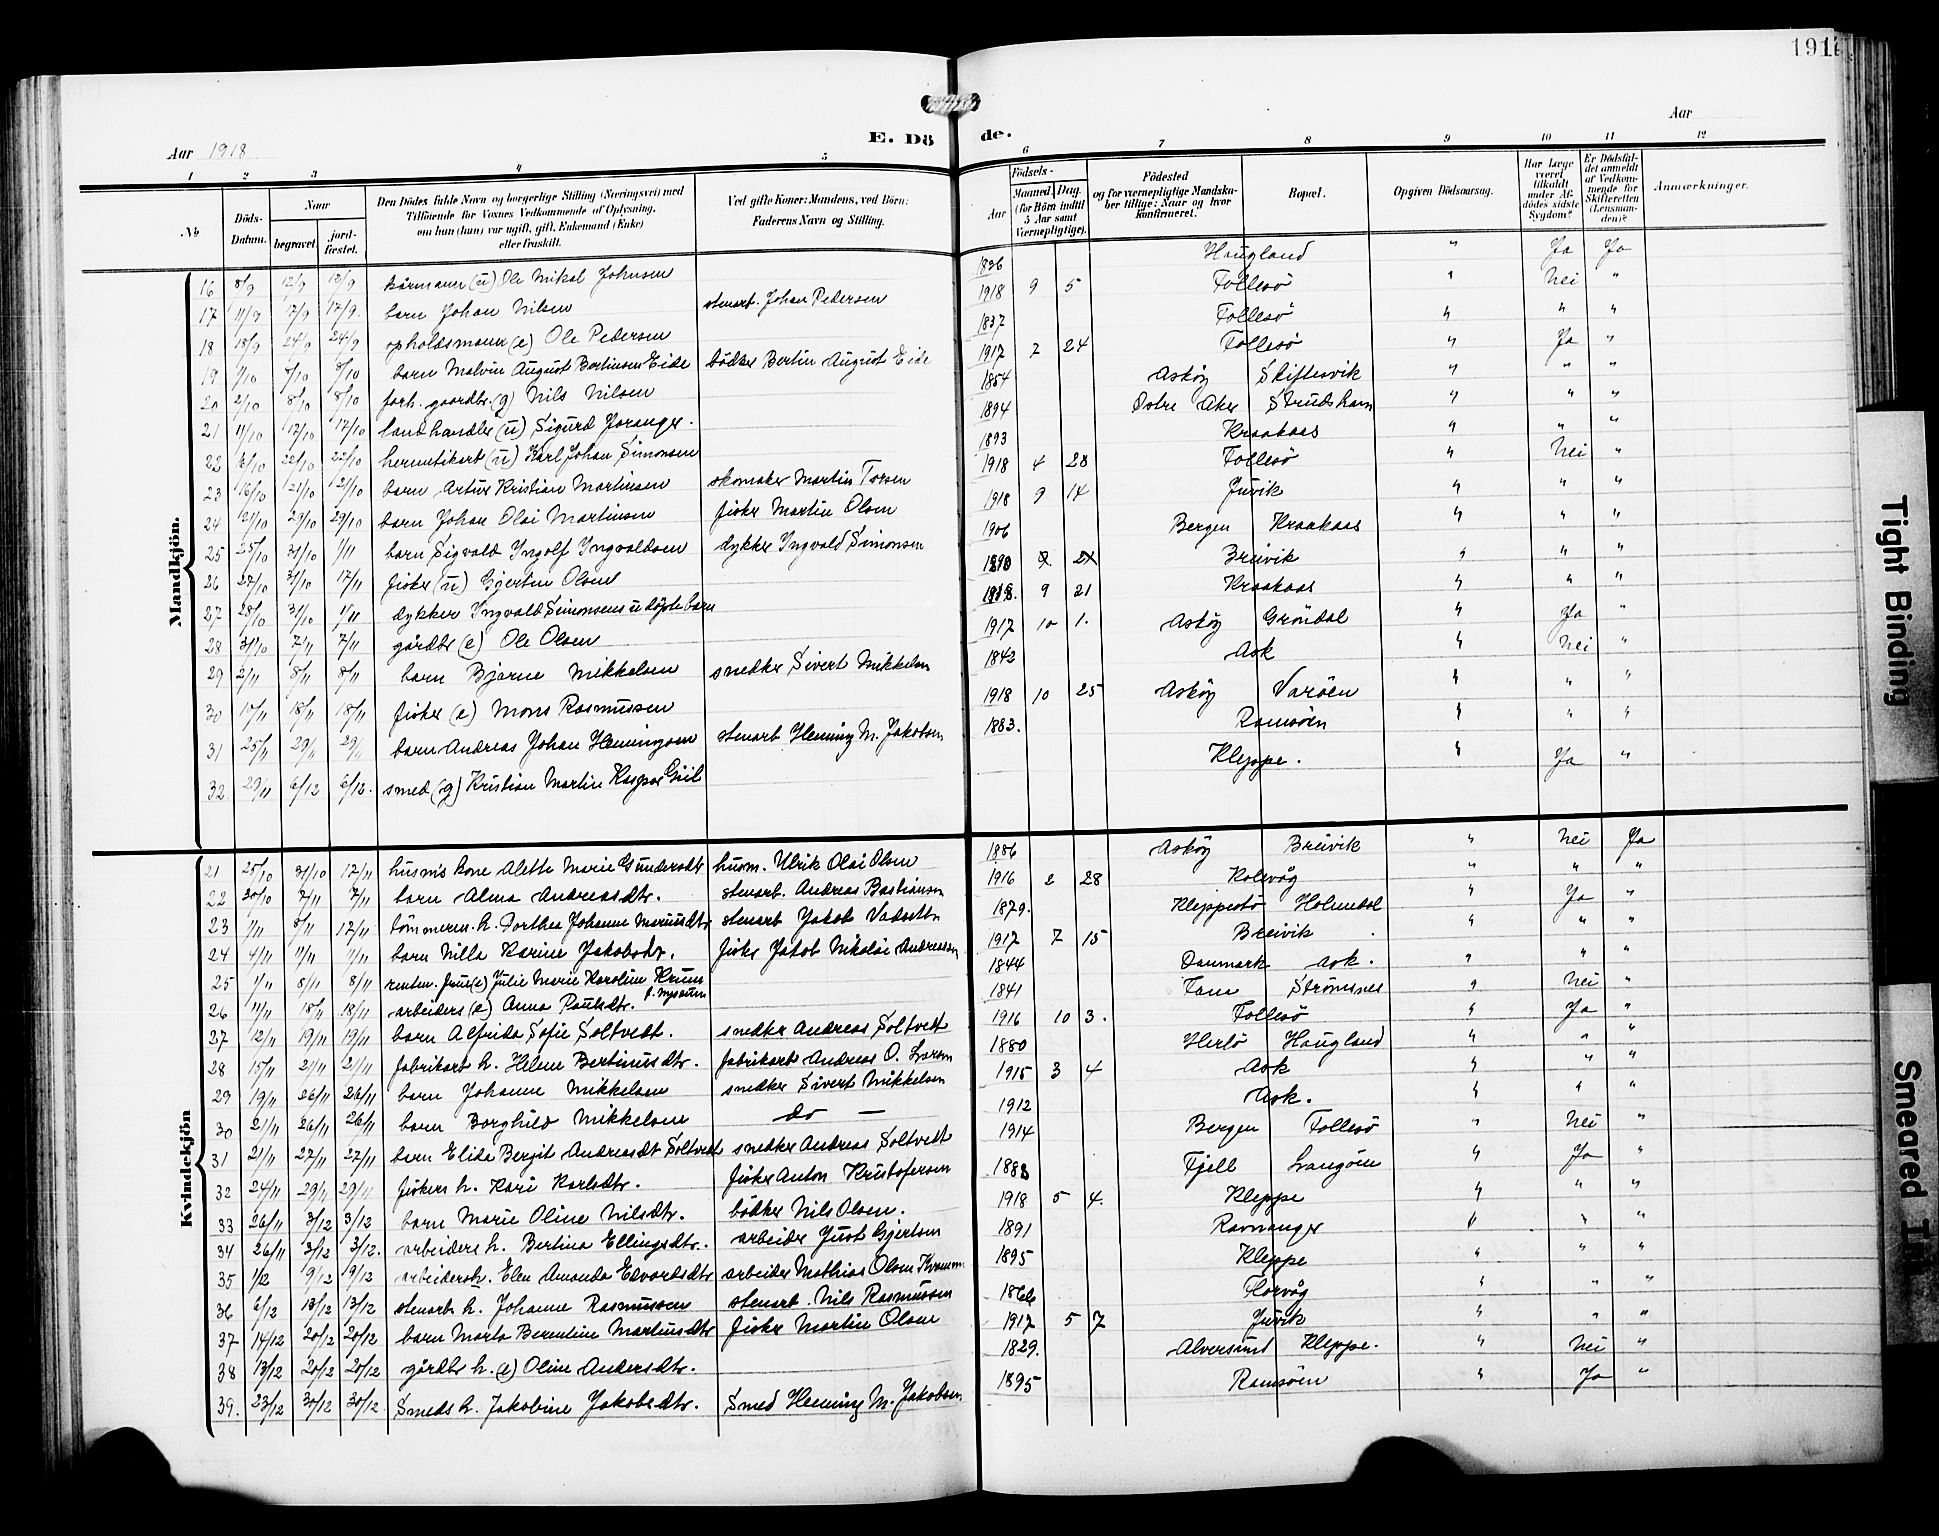 1918
Aar 1918
E. Dö
de.
Aar
1 2 3 4 5
6 7 8 9 10 11 12
№
Döds-Datum.
Naar
begravet.
jord-fæstet.
Den Dödes fulde Navn og borgerlige Stilling (Næringsvei) med
Tilföiende for Voxnes Vedkommende af Oplysning,
om han (hun) var ugift, gift, Enkemand (Enke)
eller fraskilt.
Ved gifte Koner: Mandens, ved Börn:
Faderens Navn og Stilling.
Födsels-
Aar
Maaned. Dag.
(for Börn indtil
5 Aar samt
Værnepligtige).
Födested
og for værnepligtige Mandska-
ber tillige: Naar og hvor
konfirmeret.
Bopæl.
Opgiven Dödsaarsag.
Har Læge
været
tilkaldt
under Af-
dödes sidste
Sygdom?
Er Dödsfal-
det anmeldt
af Vedkom-
mende for
Skifteretten
(Lensman-
den)?
Anmærkninger.
Mandkjön.
16 8/9 12/9 12/9 kårmann (u) Ole Mikal Johnsen 1836 Haugland " Ja Ja
17 11/9 17/9 17/9. barn Johan Nilsen stenarb. Johan Pedersen 1918 9 5 Follesö " Nei "
18 18/9 24/9 24/9 opholdsmann (e) Ole Pedersen 1837 Follesö " " "
19 1/10 7/10 8/10 barn Malvin August Bertinsen Eide bödker Bertin August Eide 1917 7 24 Follesö " Ja "
20 2/10 8/10 8/10 forh. gaardbr. (g) Nils Nilsen 1854 Asköy Skiftesvik " " "
21 11/10 17/10 17/10 landhandler (u) Sigurd Joranger. 1894 Östre Aker Strudshavn " " "
22 16/10 22/10 22/10 hermetikarb (u) Karl Johan Simonsen 1893 Kraakaas " " "
23 16/10 21/10 21/10 barn Artur Kristian Martinsen skomaker Martin Toesen 1918 4 28 Follesö " Nei "
24 21/10 29/10 29/10 barn Johan Olai Martinsen fisker Martin Olsen 1918 9 14 Juvik " " "
25 25/10 31/10 1/11 barn Sigvald Ingolf Ingvaldsen dykker Ingvald Simonsen 1906 Bergen Kraakaas " " "
26 27/10 31/10 17/11 fisker (u) Gjertin Olsen 1890 Breivik " " "
27 28/10 31/10 1/11 dykker Ingvald Simonsens udöpte barn 1918. 9 21 Kraakaas " " "
28 31/10 7/11 7/11 gårdbr (e) Ole Olsen 1917 10 1. Asköy Gröndal " Ja "
29 2/11 8/11 8/11 barn Bjarne Mikkelsen snedker Sivert Mikkelsen 1842 Ask " Nei "
30 10/11 18/11 18/11 fisker (e) Mons Rasmussen 1918 10 25 Asköy Varöen " " "
31 25/11 29/11 29/11 barn Andreas Johan Henningsen stenarb Henning M. Jakobsen 1883. Ramsöen " " "
32. 29/11 6/12 6/12. smed (g) Kristian Martin Kaspar Giil Kleppe. " Ja "
Kvindekjön
21 25/10 31/10 12/11 husm's kone Alette Marie Gundersdtr husm. Ulrik Olai Olsen 1886 Asköy Breivik " Nei Ja
22 30/10 7/11 7/11 barn Alma Andreasdtr. stenarb. Andreas Bastiansen 1916 2 28 Kolevåg " " "
23 1/11 8/11 12/11 tömmerm. h. Dorthea Johanne Monsdtr stenarb Jakob Vadsetten 1879. Kleppestö Holmedal " Ja "
24 4/11 11/11 11/11 barn Nilla Karine Jakobsdtr. fisker Jakob Nikolai Andreassen 1917 7 15 Breivik " " "
25 1/11 8/11 8/11 renten. frue (e) Julie Marie Karoline Krum 1844 Danmark Ask. " " "
26 11/11 18/11 18/11 arbeiders (e) Anna Paulsdtr. 1841 Fane Strömsnes " Nei "
27 12/11 19/11 19/11 barn Alfrida Sofie Soltvedt. snedker Andreas Soltvedt 1916 10 3. Follesö " Ja "
28 15/11 21/11 21/11 fabrikarb h. Helene Bertinusdtr. fabrikarb Andreas O. Larsen 1880 Herlö Haugland " " "
29 19/11 26/11 26/11 barn Johanne Mikkelsen snedker Sivert Mikkelsen 1915 3 4 Ask " " "
30 21/11 26/11 26/11 barn Borghild Mikkelsen do — 1912 Ask. " " "
31 21/11 27/11 27/11 barn Elida Bergit Andreasdt Soltvedt snedker Andreas Soltvedt 1914 Bergen Follesö " Nei "
32 24/11 29/11 29/11 fiskers h. Kari Karlsdtr. fisker Anton Kristofersen 1888 Fjell Langöen " Ja "
33 26/11 3/12 3/12 barn Marie Oline Nilsdtr. bödker Nils Olsen. 1918 5 4. Kleppe " " "
34 26/11 3/12 3/12. arbeiders h. Bertina Ellingsdtr. arbeider Just Gjertsen 1891 Ravnanger " " "
35 1/12 9/12 9/12 arbeidersh. Elen Amanda Edvardsdtr arbeider Mathias Olsen 1895 Kleppe " " "
36 6/12 13/12 13/12 stenarb. h. Johanne Rasmussen stenarb. Nils Rasmussen 1866 Florvåg " " "
37 14/12 20/12 20/12 barn Marta Berentine Martinsdtr fisker Martin Olsen 1917 5 7 Juvik " " "
38 13/12 20/12 20/12 gårdbr h. (e) Oline Andersdtr. 1829. Alversund Kleppe. " Nei "
39. 23/12 30/12 30/12. Smeds h. Jakobine Jakobsdtr. Smed Henning M. Jakobsen 1895 Ramsöen " Ja "
Tight Binding
Smeared Ink